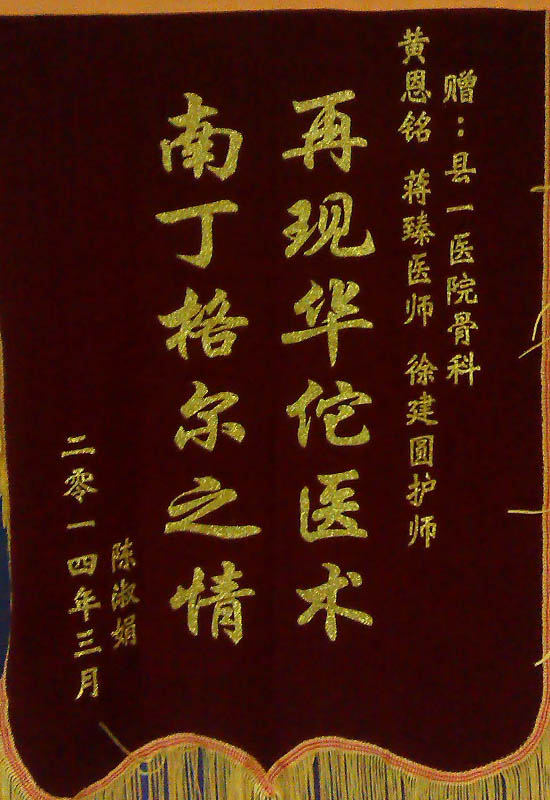 赠：县一医院骨科
黄恩铭 蒋臻医师 徐建圆护师
再现华佗医术
南丁格尔之情
陈淑娟
二零一四年三月